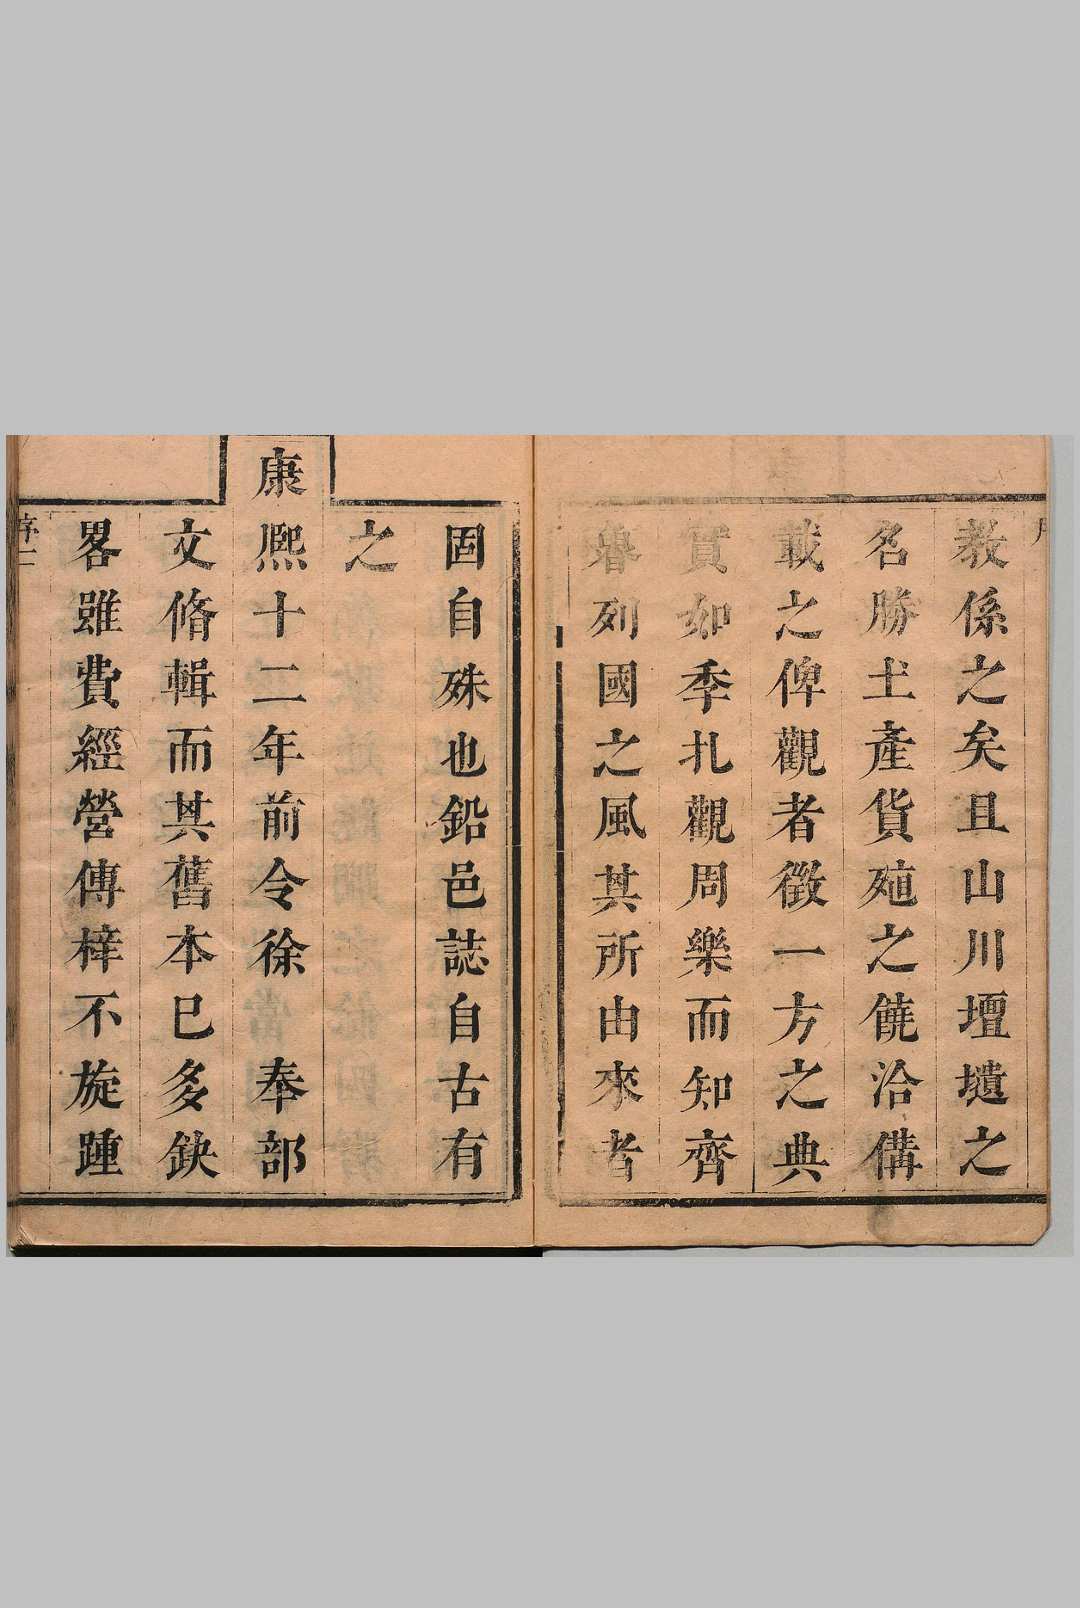 教係之矣且山川壇壝之
名勝土產貨殖之饒洽備
載之俾觀者徵一方之典
實如季札觀周樂而知齊
魯列國之風其所由來者
固自殊也鉛邑誌自古有
之
康熙十二年前令徐 奉部
文脩輯而其舊本已多缺
畧雖費經營傳梓不旋踵
序二